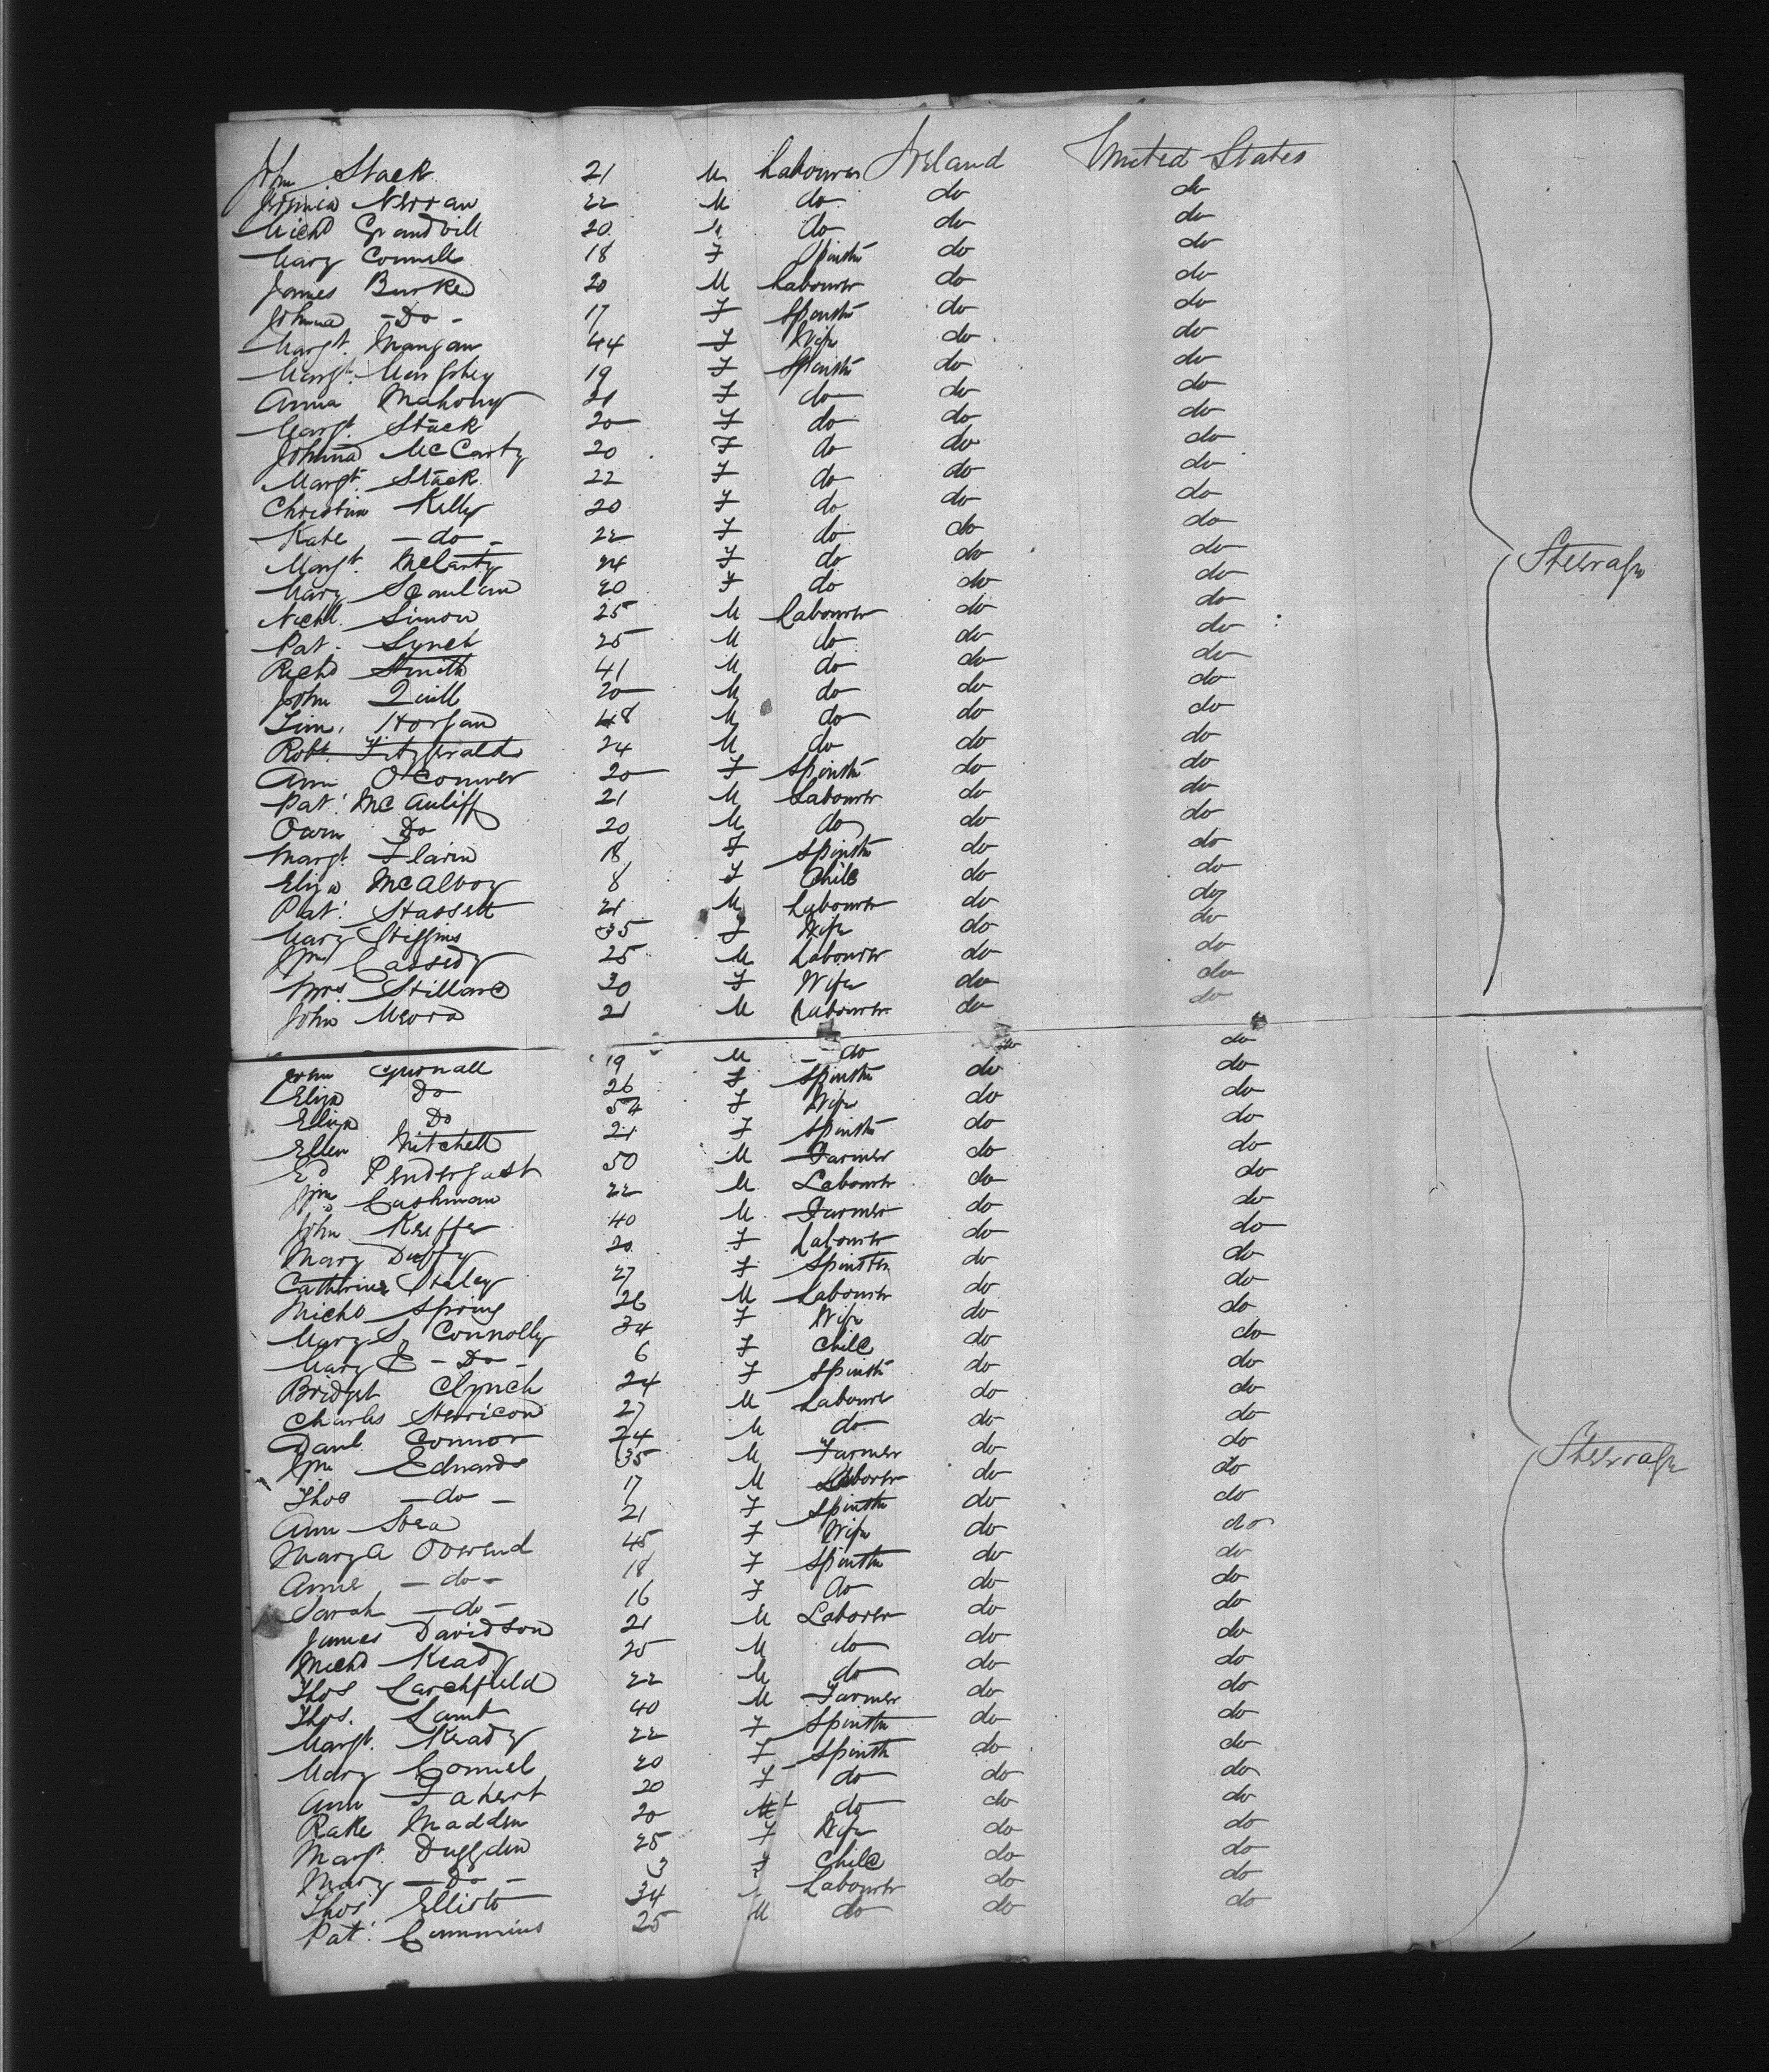 John Stack 21 M Labourer Ireland United States
22 M do do do
Michd Grandvill 20 M do do do
Mary Connell 18 F Spinstr do do
James Burke 20 M Labourer do do
Johnna - Do - 17 F Spinstr do do
Margt. Mangan 44 F Wife do do
Margt. Murphy 19 F Spinstr do do
Anna Mahony 21 F do do do
Margt. Stack 20 F do do do
Johnna McCarty 20 F do do do
Margt. Stack 22 F do do do
Christina Kelly 20 F do do do
Kate - do - 22 F do do do
Margt. McCarty 24 F do do do Steerage
Mary Scanlan 20 F do do do
Michl. Simon 25 M Labourer do do
Pat. Lynch 25 M do do do
Richd Smith 41 M do do do
John Quill 20 M do do do
Tim. Horgan 48 M do do do
Robt. Fitzgerald 24 M do do do
Ann O'Connor 20 F Spinstr do do
Pat. McAuliff 21 M Labourer do do
Owen Do 20 M do do do
Margt. 18 F Spinstr do do
Eliza McAlvoy 8 F Child do do
Pat. Hassett 21 M Labourer do do
Mary Higgins 35 F Wife do do
Jno Cassedy 25 M Labourer do do
Mrs. Hillard 30 F Wife do do
John Meara 21 M Labourer do do
John Gurnall 19 M do do do
Eliza Do 26 F Spinstr do do
Eliza Do 54 F Wife do do
Ellen Mitchell 21 F Spinstr do do
Ed Pendergast 50 M Farmer do do
Jno. Cashman 22 M Labourer do do
John Keiffe 40 M Farmer do do
Mary Duffy 20 F Labourer do do
Catherine Haley 27 F Spinster do do
Michd Spring 26 M Labourer do do
Mary S. Connolly 34 F Wife do do
Mary E - Do - 6 F Child do do
Bridget Clynch 24 F Spinstr do do
Charles 27 M Labourer do do
Danl. Connor 24 M do do do
Jno Edwards 35 M Farmer do do Steerage
Thos - do - 17 M Laborer do do
Ann Shea 21 F Spinstr do do
Mary A Overend 45 F Wife do do
Anne - do - 18 F Spinstr do do
Sarah - do - 16 F do do do
James Davidson 21 M Laborer do do
Michd Keady 25 M do do do
Thos Larchfield 22 M do do do
Thos. Lamb 40 M Farmer do do
Margt. Keady 22 F Spinstr do do
Mary Conniel 20 F Spinstr do do
Ann Fahert 20 F do do do
Kate Madden 20 do do do
Margt. Duggdin 25 F Wife do do
Mary - Do - 3 F Child do do
Thos Elliott 34 Labourer do do
Pat. Cummins 25 M do do do